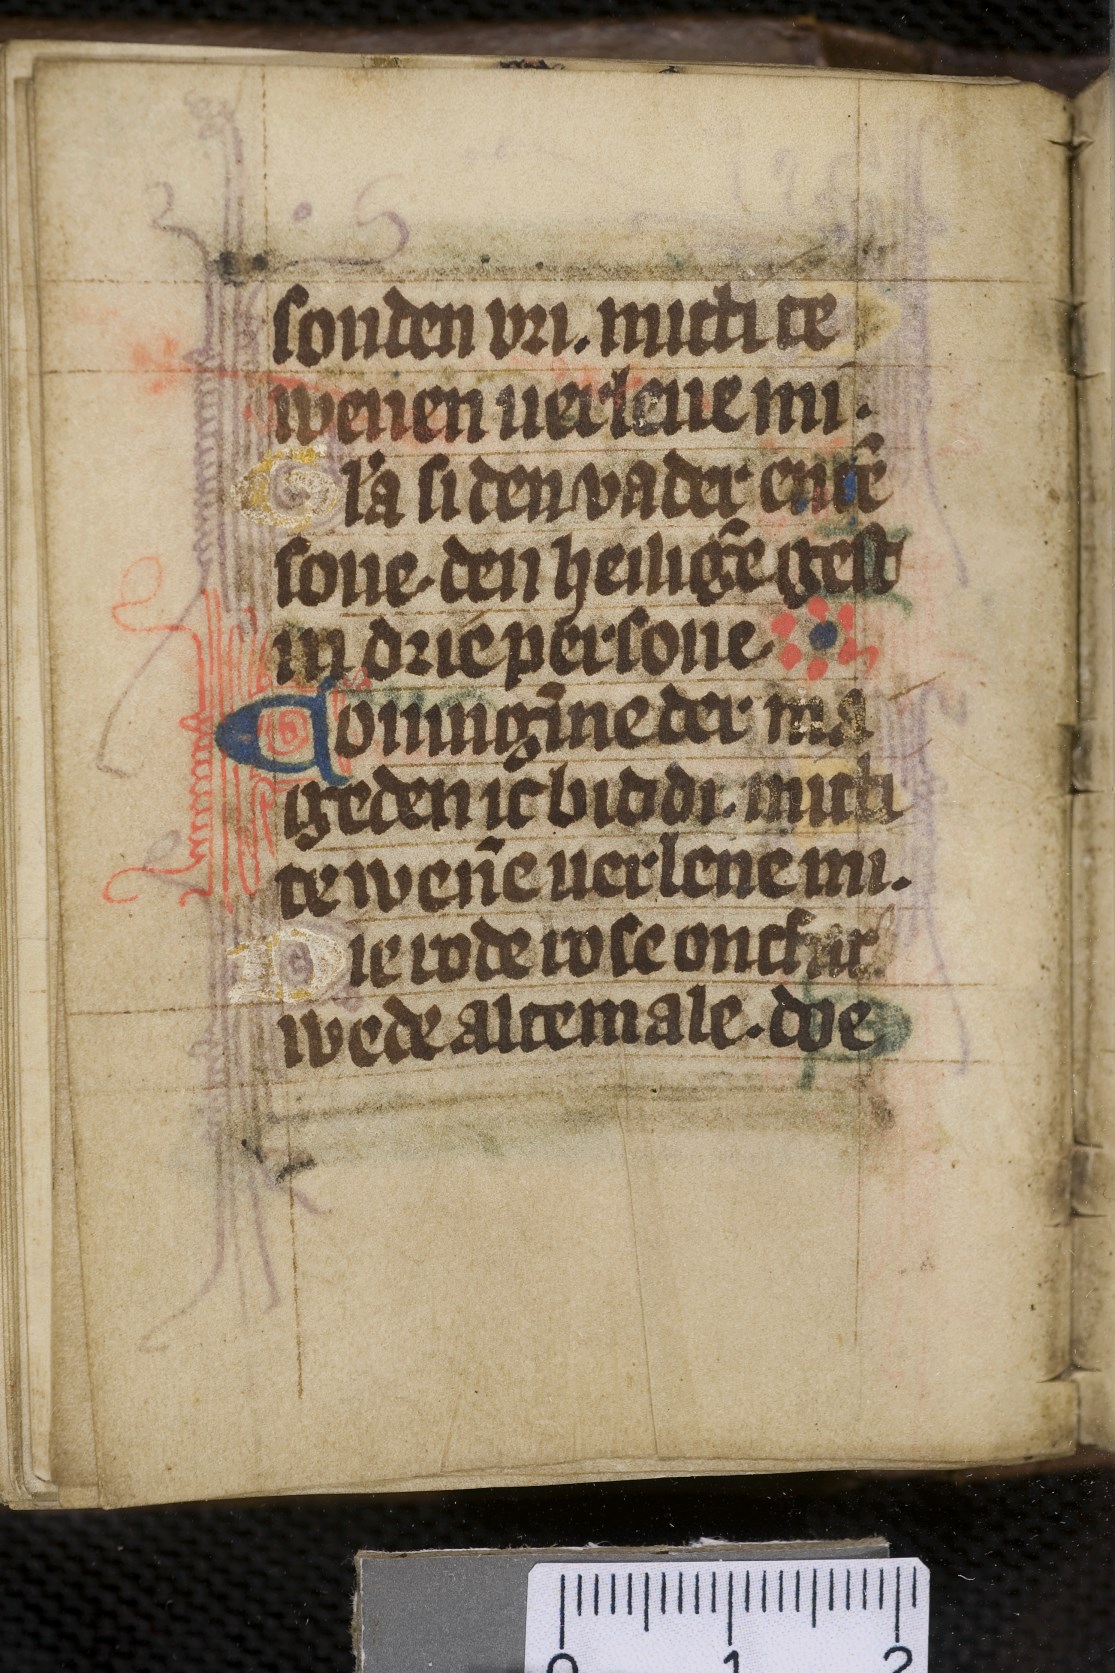 sonden vri. mi cti te
wenen uerlene mi.
Gl'a si den vader en tē
sone. den heiligē gest
in drie persone
Coningīne der ma
geden ic bid di. mi cti
te wen̄e uerlene mi.
Die rode rose ontfinc
wede altemale. doe
0 1 2